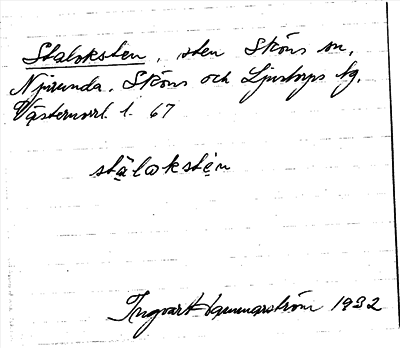 Staloksten, sten Sköns sn,
Njurunda, Sköns och Ljustorps tg,
Västernorrl. l. 67
stạ̈lokstẹn
Ingvar Hammarström 1932